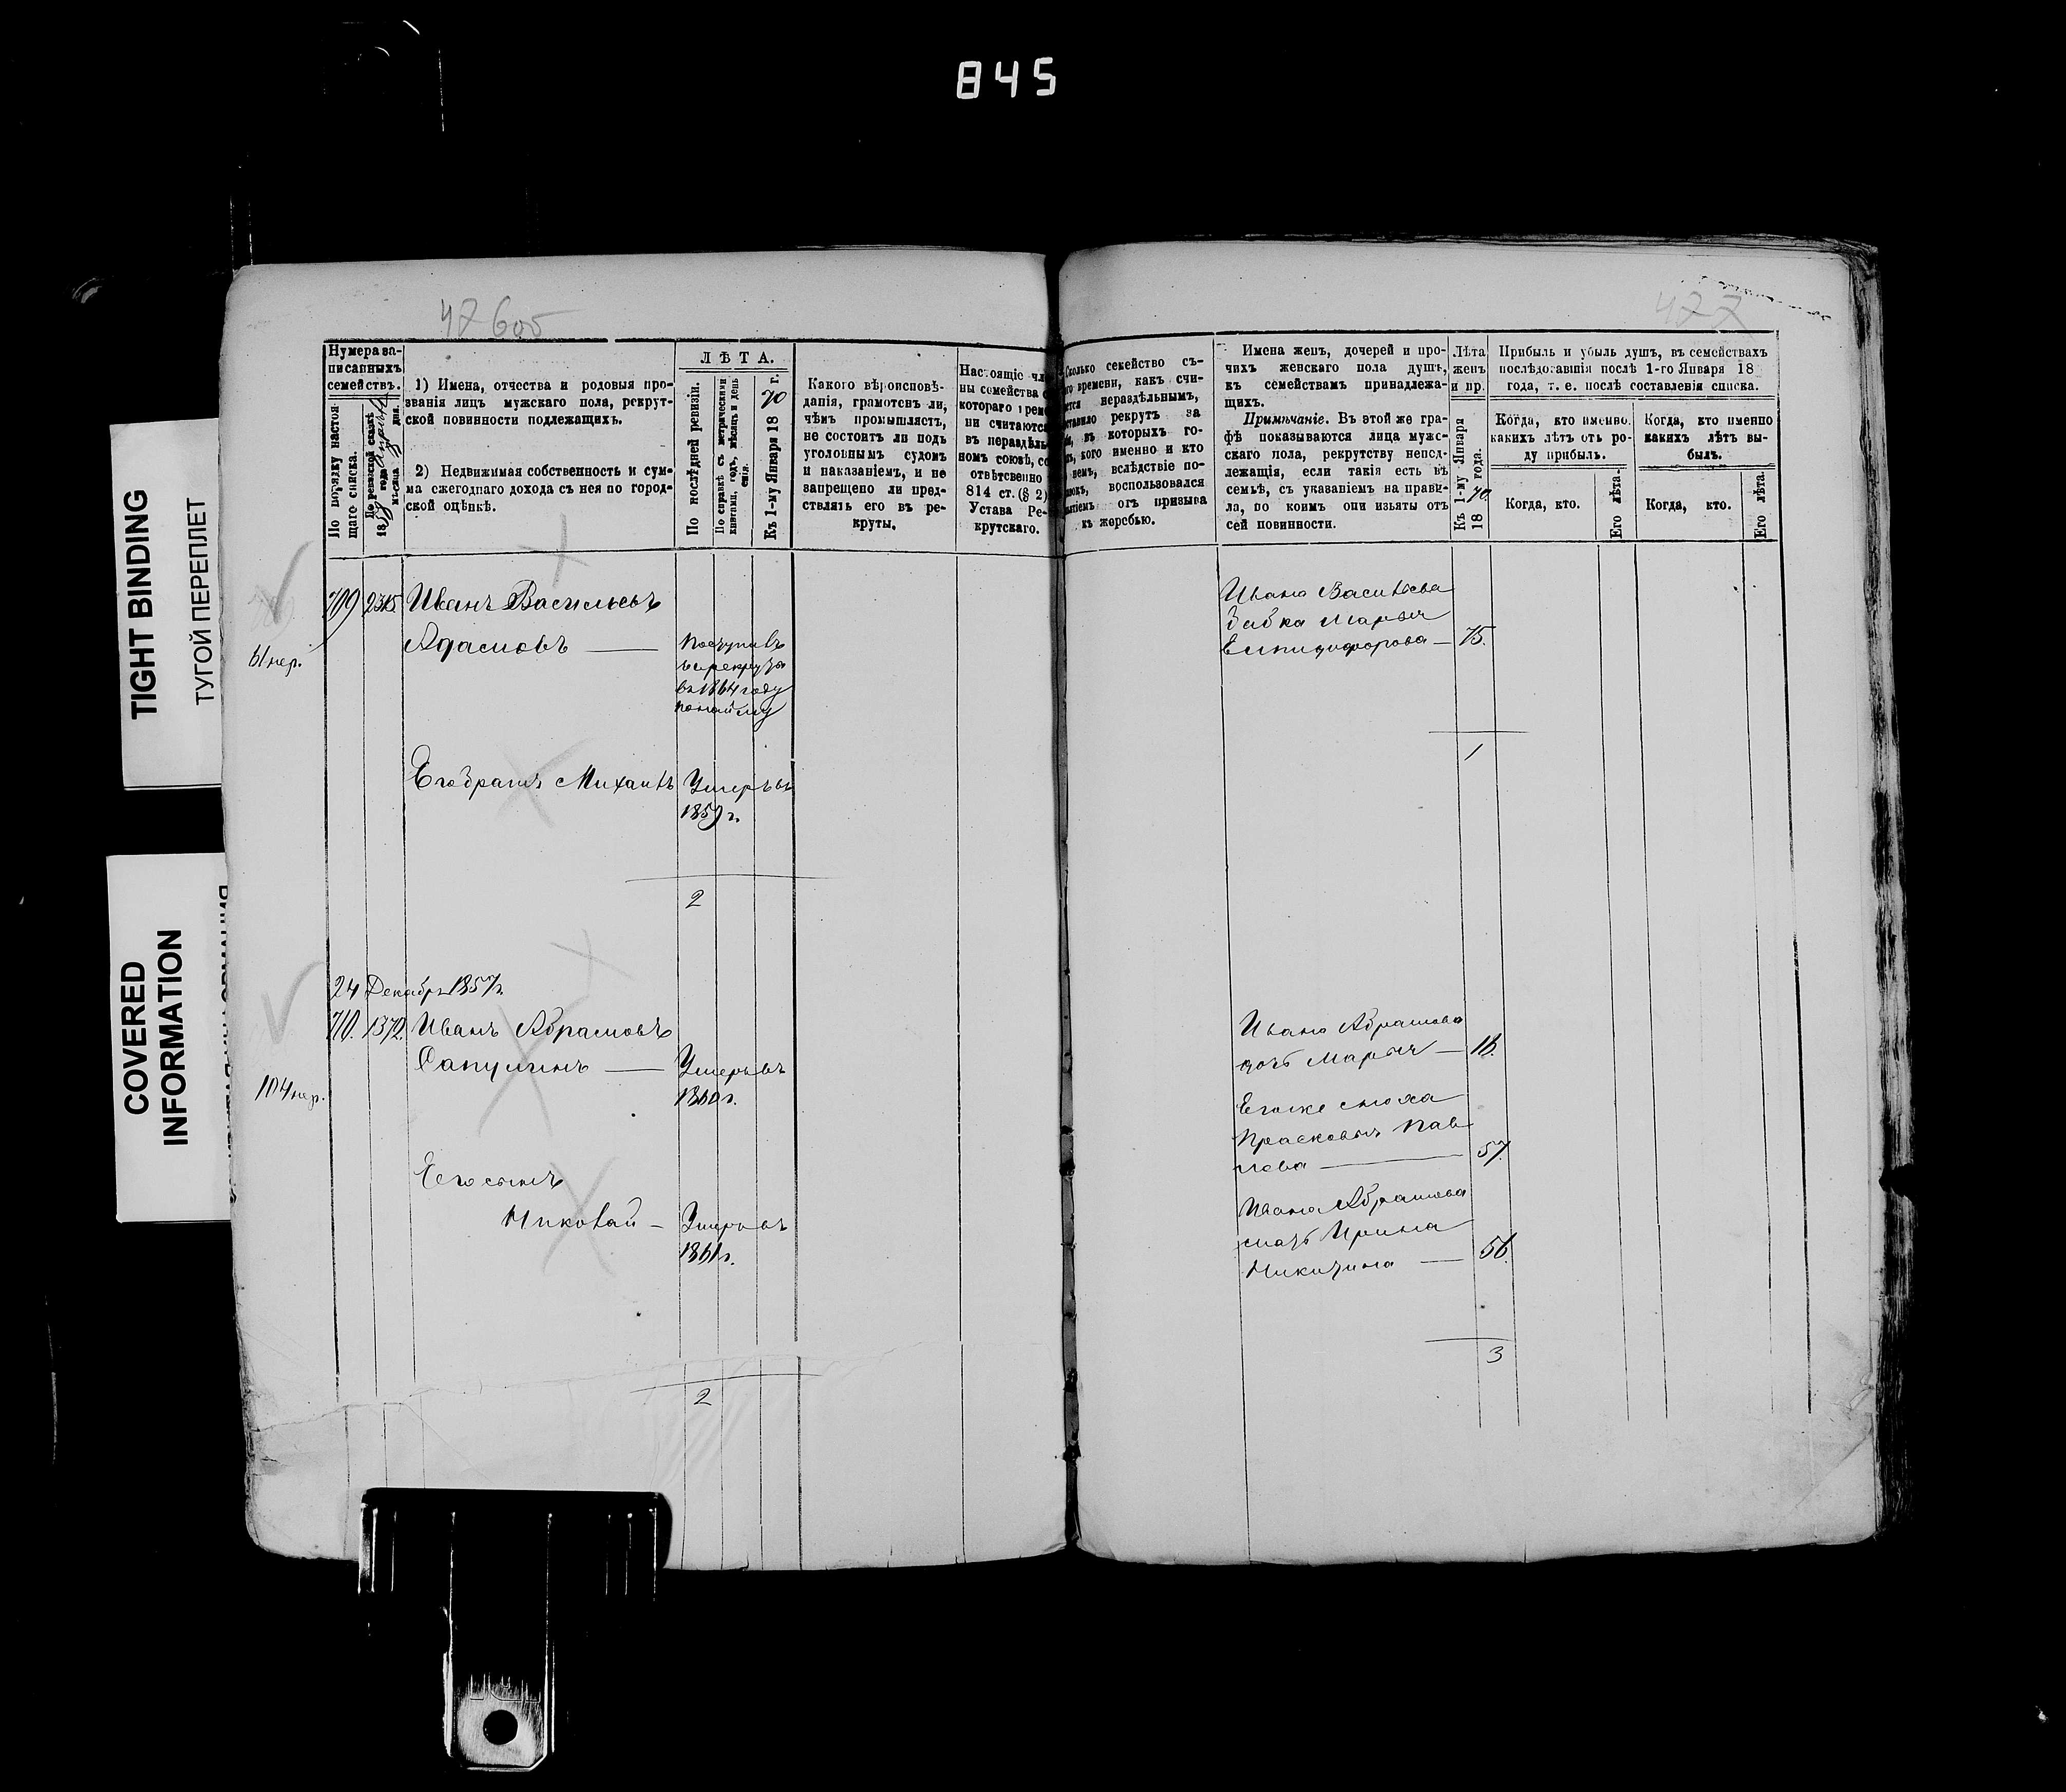 845
TIGHT BINDING
ТУГОЙ ПЕРЕПЛЕТ
COVERED
INFORMATION
477
Нумера за-
писанныхъ
семействъ.
По порядку настоя-
щаго списка.
По ревизской сказкѣ
1858 года
мѣсяца дня.
1) Имена, отчества и родовыя про-
званія лицъ мужскаго пола, рекрут-
ской повинности подлежащихъ.
2) Недвижимая собственность и сум-
ма ежегоднаго дохода съ нея по город-
ской оцѣнкѣ.
ЛѢТА.
По послѣдней ревизіи.
По справкѣ съ метрическими
книгами, годъ, мѣсяцъ и день
Къ 1-му Января 1870 г.
Какого вѣроисповѣ-
данія, грамотенъ ли,
чѣмъ промышляетъ,
не состоитъ ли подъ
уголовнымъ судомъ
и наказаніемъ, и не
запрещено ли пред-
ставлять его въ ре-
круты.
Настоящіе чле
ны семейства с
котораго врем
ни считаются
въ нераздѣль-
номъ союзѣ, со
отвѣтсвенно
814 ст. (§ 2)
Устава Ре-
крутскаго.
Сколько семейство съ-
го времени, какъ счи-
ется нераздѣльнымъ,
ставило рекрутъ за
въ которыхъ го-
кого именно и кто
немъ, вслѣдствіе по-
воспользовался
отъ призыва
къ жеребью.
Имена женъ, дочерей и про-
чихъ женскаго пола душъ,
къ семействамъ принадлежа-
щихъ.
Примѣчаніе. Въ этой же гра-
фѣ показываются лица муже-
скаго пола, рекрутству непод-
лежащія, если такія есть въ
семьѣ, съ указаніемъ на прави-
ла, по коимъ они изъяты отъ
сей повинности.
Лѣта
женъ
и пр.
Къ 1-му Января
1870 года.
Прибыль и убыль душъ, въ семействахъ
послѣдовавшія послѣ 1-го Января 18
года, т. е. послѣ составленія списка.
Когда, кто именно
какихъ лѣтъ отъ ро-
ду прибылъ.
Когда, кто именно
какихъ лѣтъ вы-
былъ.
Когда, кто.
Его лѣта.
Когда, кто.
Его лѣта.
709 2315 Иванъ Васильевъ
Адамовъ — Поступилъ
въ рекруты
въ 1864 году
по найму
61 нер.
Его братъ Михаилъ Умеръ въ
1859 г.
2
Ивана Васильева
бабка Марья
Епидифорова — 75.
1
24 Декабря 1857 г.
710. 1372. Иванъ Абрамовъ
Сапулинъ — Умеръ въ
1860 г.
104 нер.
Его сынъ
Николай — Умеръ въ
1861 г.
2
Ивана Абрамова
дочь Марья — 16.
Его же сноха
Прасковья Пав
лова — 57.
Ивана Абрамова
мать Ирина
Никитина — 56.
3